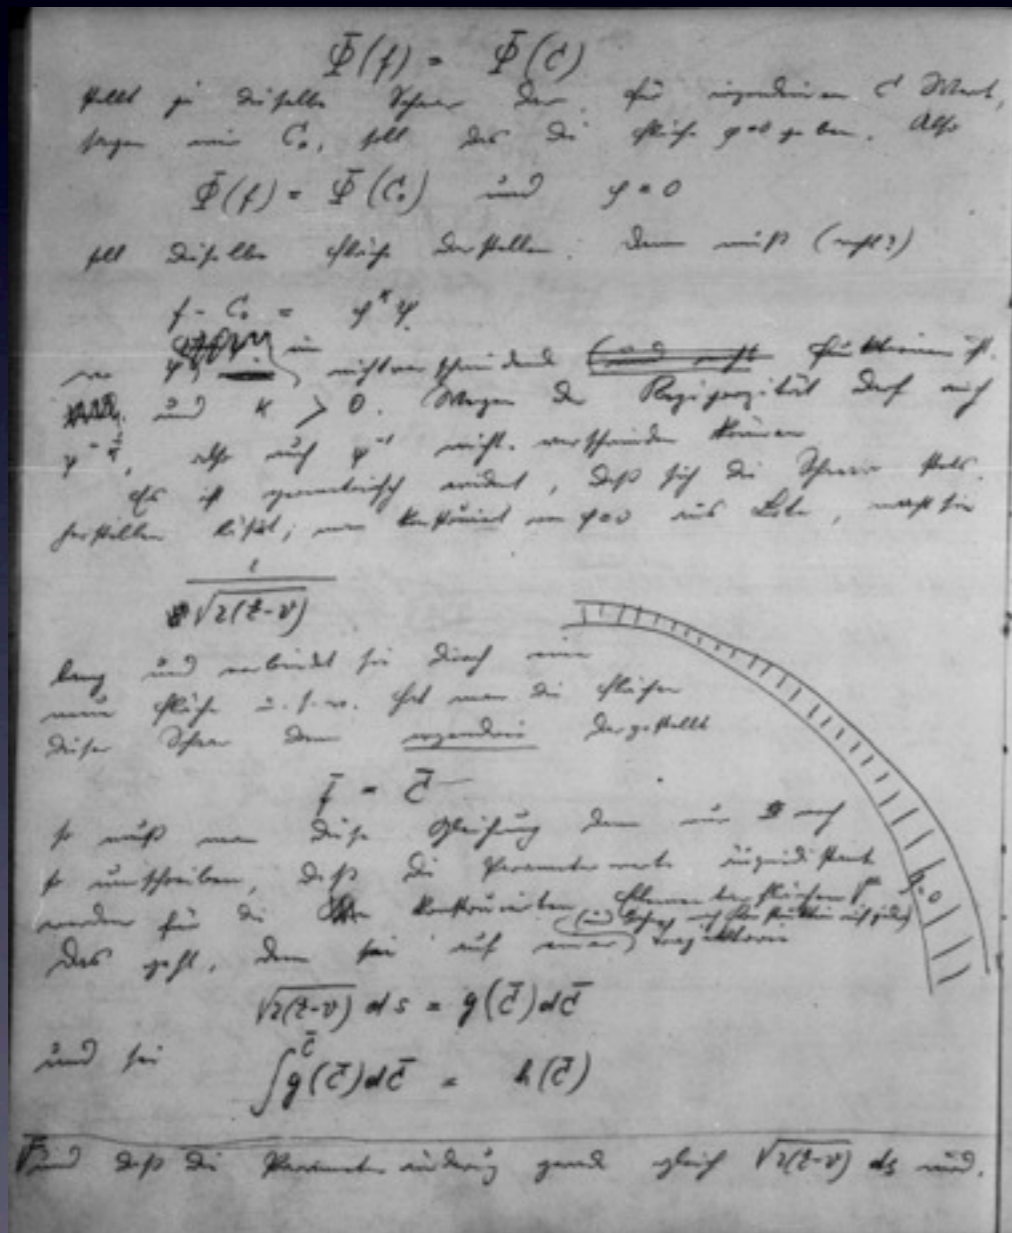 Φ̄(f) = Φ̄(C)
stellt ja dieselbe Schaar dar. für irgendeinen C Wert,
sagen wir C₀, soll das die Fläche φ=0 geben. Also
Φ̄(f) = Φ̄(C₀) und φ = 0
soll dieselbe Fläche darstellen. Dann muß (recht?)
f - C₀ = φᵏ ψ
wo ψ nicht verschwindend Funktionen ist.
und κ > 0. Wegen der Reziprozität darf auch
also auch ψ⁻¹ nicht verschwinden können
Es ist geometrisch evident, daß sich die Schaar stets
herstellen läßt; man konstruiert von φ=0 aus Lote, macht sie
1
√2(E-V)
lang und verbindet sie durch eine
neue Fläche u.s.w. Hat man die Flächen
dieser Schaar dann irgendwie dargestellt
f̄ = C̄
so muß man diese Gleichung dann nur noch
so umschreiben, daß die Parameterwerte äquidistant
werden für die konstruierten Elementarflächen
Das geht, denn sei auf einer Trajektorie
φ=0
√2(E-V) ds = g(C̄)dC̄
und sei ∫^C̄ g(C̄)dC̄ = h(C̄)
und daß die Parameteränderung gerade gleich √2(E-V) ds wird.